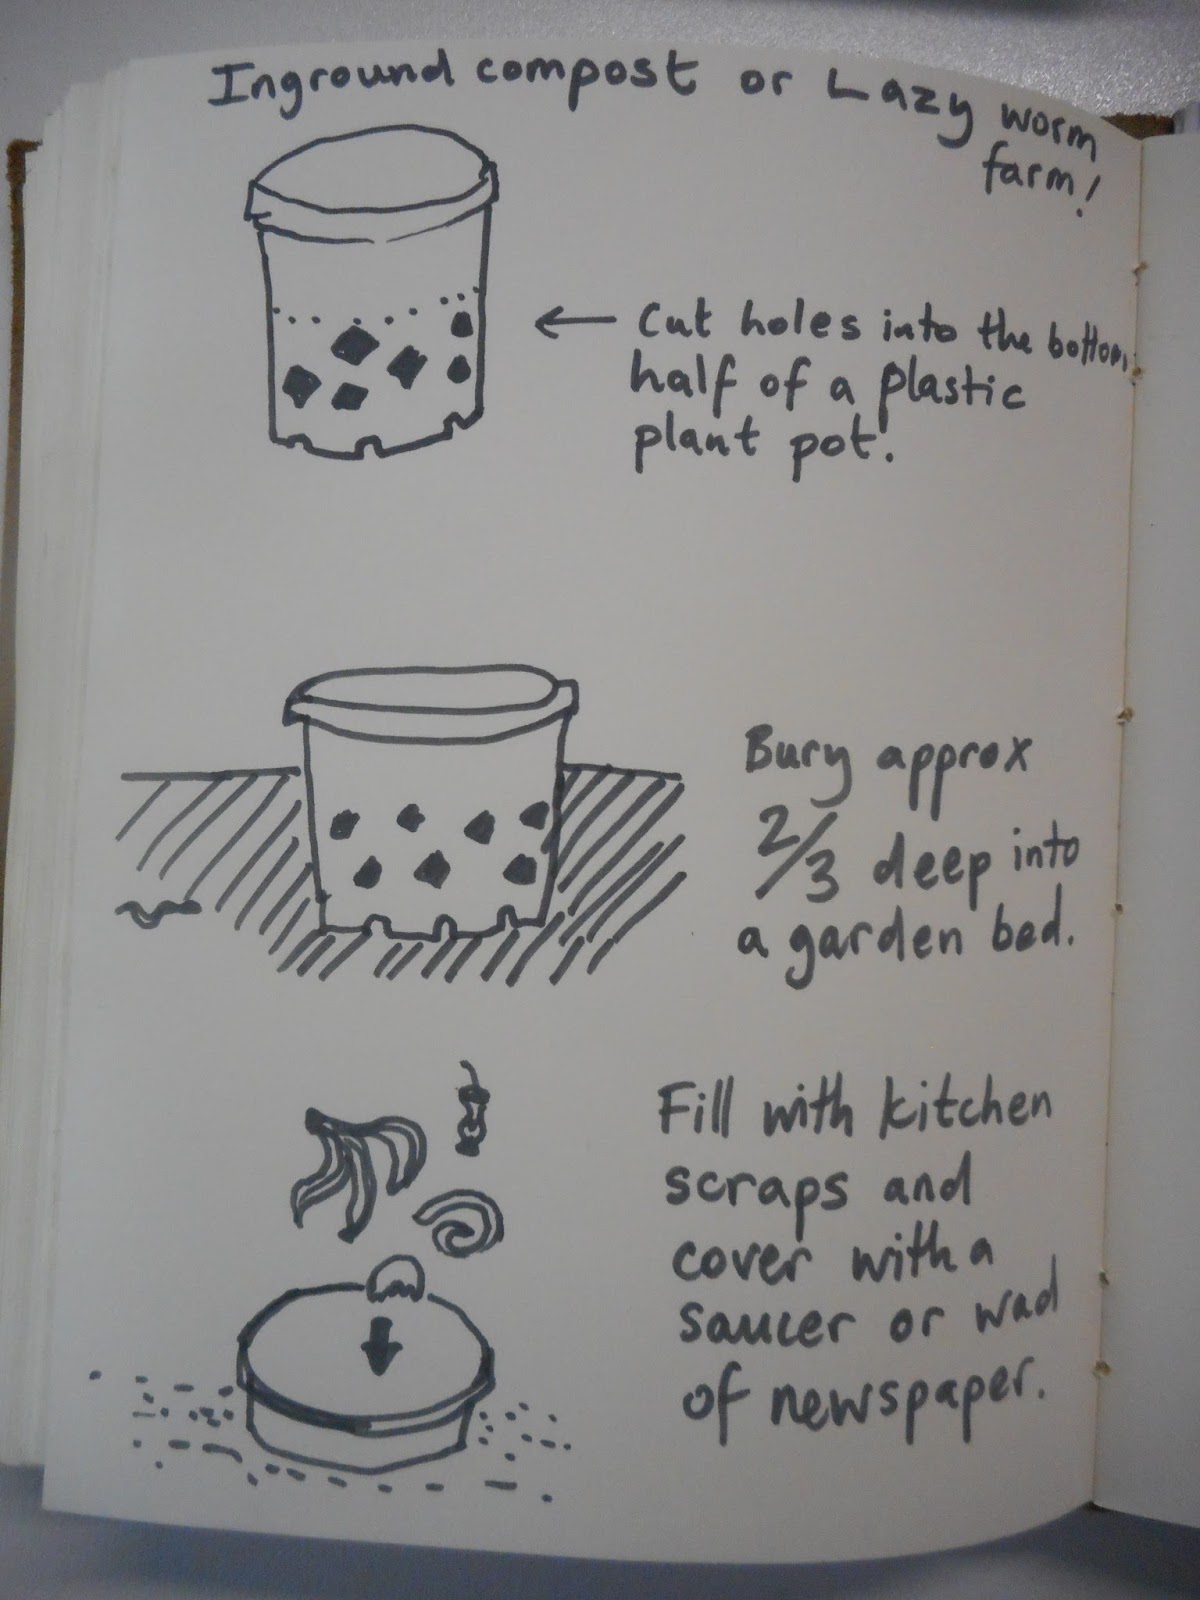 Inground compost or Lazy worm
farm!
Cut holes into the bottom
half of a plastic
plant pot.
Bury approx
2/3 deep into
a garden bed.
Fill with kitchen
scraps and
cover with a
saucer or wad
of newspaper.